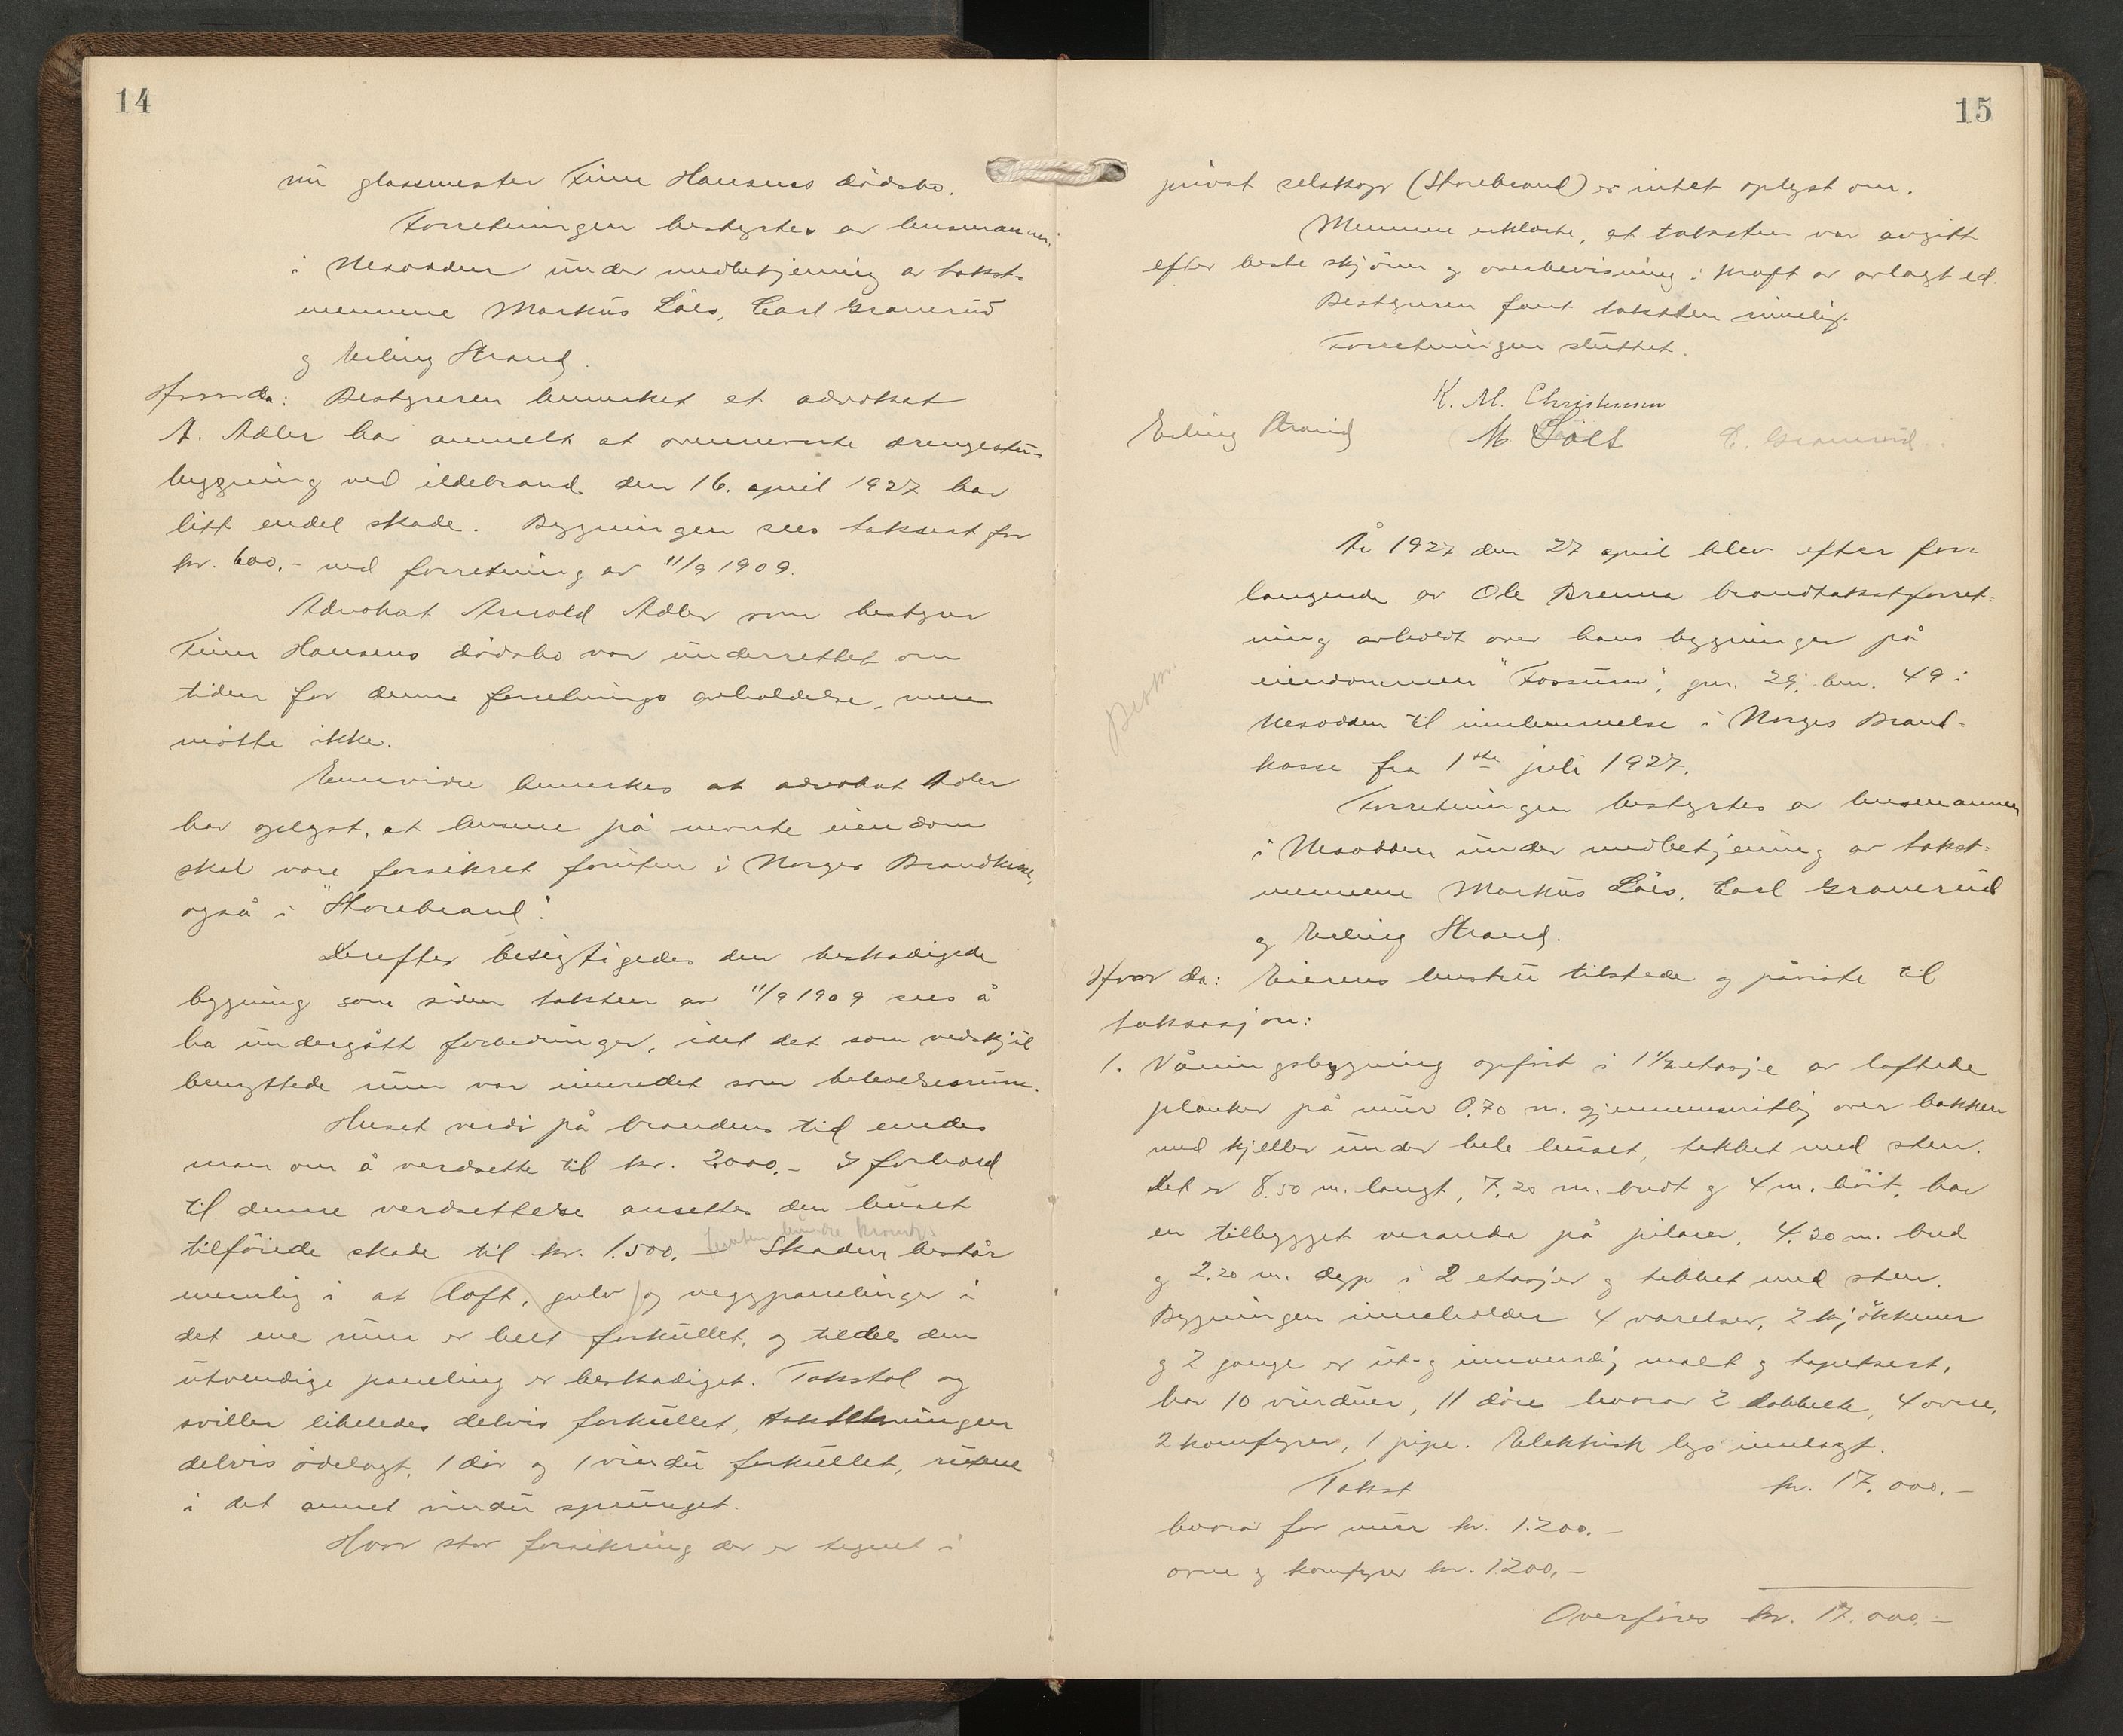 14
nu glassmester Finn Hansens dödsbo.
Forretningen bestyrtes av lensmannen
i Nesodden under medbetjening av takst-
mennene Markus Låes, Carl Granerud
og Erling Strand.
Hvor da: Bestyreren bemerket at advokat
A. Adler har anmelt at ovennevnte drengestu-
bygning ved ildebrand den 16. april 1927 har
litt endel skade. Bygningen sees taksert for
kr. 600.- ved forretning av 11/9 1909.
Advokat Arnold Adler som bestyrer
Finn Hansens dödsbo var underrettet om
tiden for denne forretnings avholdelse, men
møtte ikke.
Ennvidre bemerkes at advokat Adler
har oplyst, at husene på nevnte eiendom
skal være forsikret foruten i Norges Brandkasse,
også i "Storebrand".
Derefter besigtigedes den beskadigede
bygning som siden taksten av 11/9 1909 sees å
ha undergått forbedringer, idet det som vedskjul
benyttede rum var innredet som beboelsesrum.
Huset verdi på brandens tid enedes
man om å verdsette til kr. 2000.- I forhold
til denne verdsettelse ansettes den huset
femten hundre kroner
tilföiede skade til kr. 1.500.- Skaden består
nemlig i at loft, gulv og veggpanelinger i
det ene rum er helt forkullet, og tildels den
utvendige paneling er beskadiget. Takstol og
sviller likeledes delvis forkullet, taktekningen
delvis ödelagt, 1 dör og 1 vindu forkullet, rutene
i det annet vindu sprunget.
Hvor stor forsikring der er tegnet i
15
privat selskap (Storebrand) er intet oplyst om.
Mennene erklærte, at taksten var avgitt
efter beste skjönn og overbevisning i kraft av avlagt ed.
Bestyreren fant taksten rimelig.
Forretningen sluttet.
K. M. Christensen
Erling Strand M. Låes C. Granerud.
År 1927 den 27 april blev efter for-
langende av Ole Brenna brandtakstforret-
ning avholdt over hans bygninger på
eiendommen "Fossum", gnr. 29, bnr. 49 i
Nesodden til innlemmelse i Norges Brand-
kasse fra 1ste juli 1927.
Forretningen bestyrtes av lensmannen
i Nesodden under medbetjening av takst-
mennene Markus Låes, Carl Granerud
og Erling Strand.
Hvor da: Eierens hustru tilstede og påviste til
taksasjon:
1. Våningsbygning opfört i 1 1/2 etasje av laftede
planker på mur 0,70 m. gjennemsnitlig over bakken
med kjeller under hele huset, tekket med sten.
Det er 8.50 m. langt, 7.20 m. bredt og 4 m. höit, har
en tilbygget veranda på pilarer, 4.20 m. bred
og 2.20 m. dyp i 2 etasjer og tekket med sten.
Bygningen inneholder 4 værelser, 2 kjökkener
og 2 gange er ut- og innvendig malt og tapetsert,
har 10 vinduer, 11 döre hvorav 2 dobbelte, 4 ovne,
2 komfyrer, 1 pipe. Elektrisk lys innlagt.
Takst kr. 17.000.-
hvorav for mur kr. 1.200.-
ovne og komfyrer kr. 1200.-
Overføres kr. 17.000.-